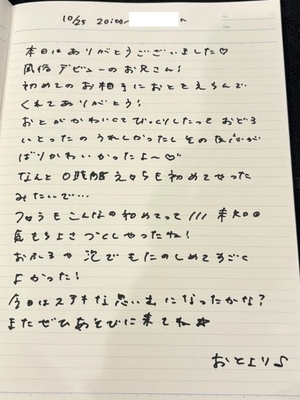 10/25 20:00～
本日はありがとうございました♡
風俗デビューのお兄さん!
初めてのお相手におとをえらんで
くれてありがとう!
おとがかわいくてびっくりしたって おどろ
いとったの うれしかったし その反応が
ばりかわいかったよ〜♡
なんと
も初めてやった
みたいで…
こんなの初めてって///
気もちよさ
やったね!
おふろや 泡でもたのしめてすごく
よかった!
今日はステキな思い出になったかな?
またぜひあそびに来てね☆
おとより♪